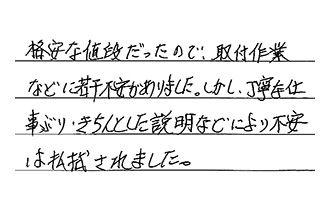 格安な値段だったので、取付作業
などに若干不安がありました。しかし、丁寧な仕
事ぶり・きちんとした説明などにより不安
は払拭されました。